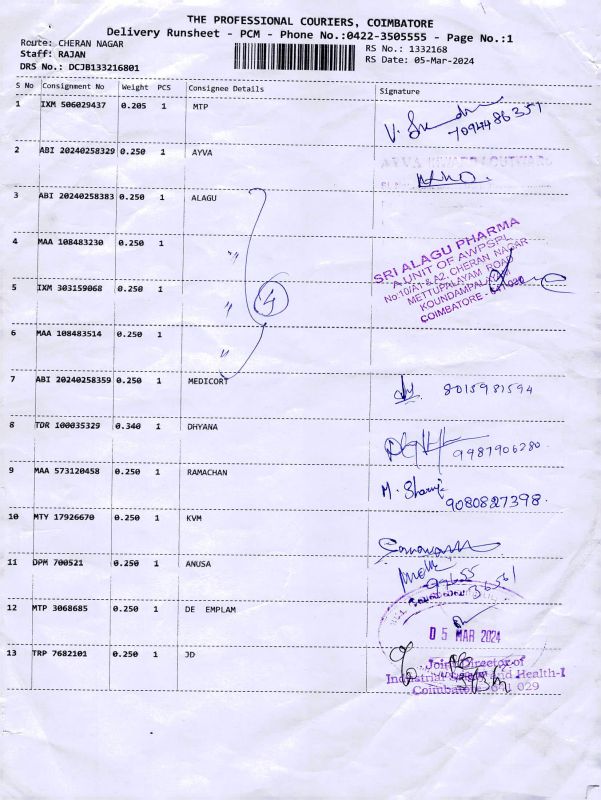 THE PROFESSIONAL COURIERS, COIMBATORE
Delivery Runsheet - PCM - Phone No.:0422-3505555 - Page No.:1
Route: CHERAN NAGAR
Staff: RAJAN
DRS No.: DCJB133216801
RS No.: 1332168
RS Date: 05-Mar-2024
S No Consignment No Weight PCS Consignee Details Signature
1 IXM 506029437 0.205 1 MTP
7094486351
2 ABI 20240258329 0.250 1 AYVA
3 ABI 20240258383 0.250 1 ALAGU
4 MAA 108483230 0.250 1 "
SRI ALAGU PHARMA
A UNIT OF AWPSPL
No:10/A1-& A2, CHERAN NAGAR
METTUPALAYAM ROAD
KOUNDAMPALAYAM
COIMBATORE - 641 030
5 IXM 303159068 0.250 1 "
4
6 MAA 108483514 0.250 1 "
7 ABI 20240258359 0.250 1 MEDICORT
8015981594
8 TDR 100035329 0.340 1 DHYANA
9987906280.
9 MAA 573120458 0.250 1 RAMACHAN
M.
9080827398.
10 MTY 17926670 0.250 1 KVM
11 DPM 700521 0.250 1 ANUSA
99655
36561
12 MTP 3068685 0.250 1 DE EMPLAM
05 MAR 2024
13 TRP 7682101 0.250 1 JD
Joint Director of
Industrial Safety and Health-I
Coimbatore - 641 029